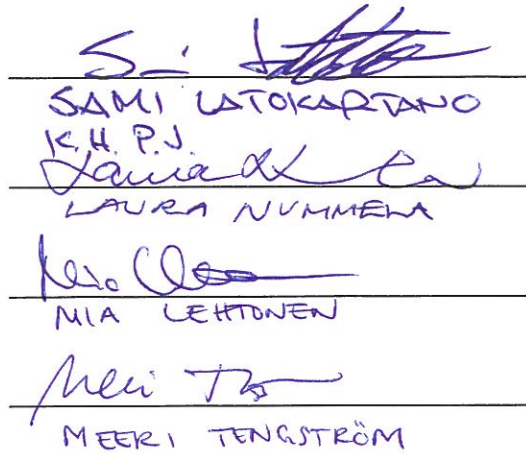 SAMI LATOKARTANO
K.H. P.J.
LAURA NUMMELA
MIA LEHTONEN
MEERI TENGSTRÖM